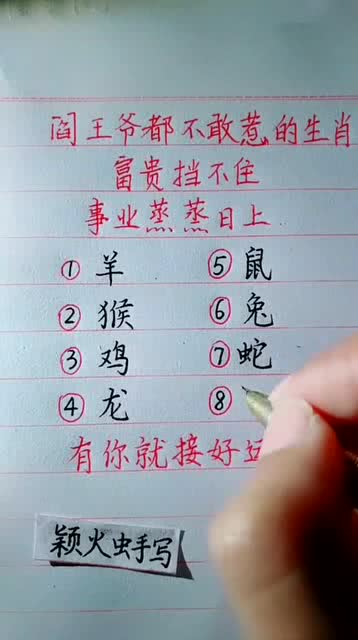 阎王爷都不敢惹的生肖
富贵挡不住
事业蒸蒸日上
① 羊 ⑤ 鼠
② 猴 ⑥ 兔
③ 鸡 ⑦ 蛇
④ 龙 ⑧
有你就接好
颖火虫手写